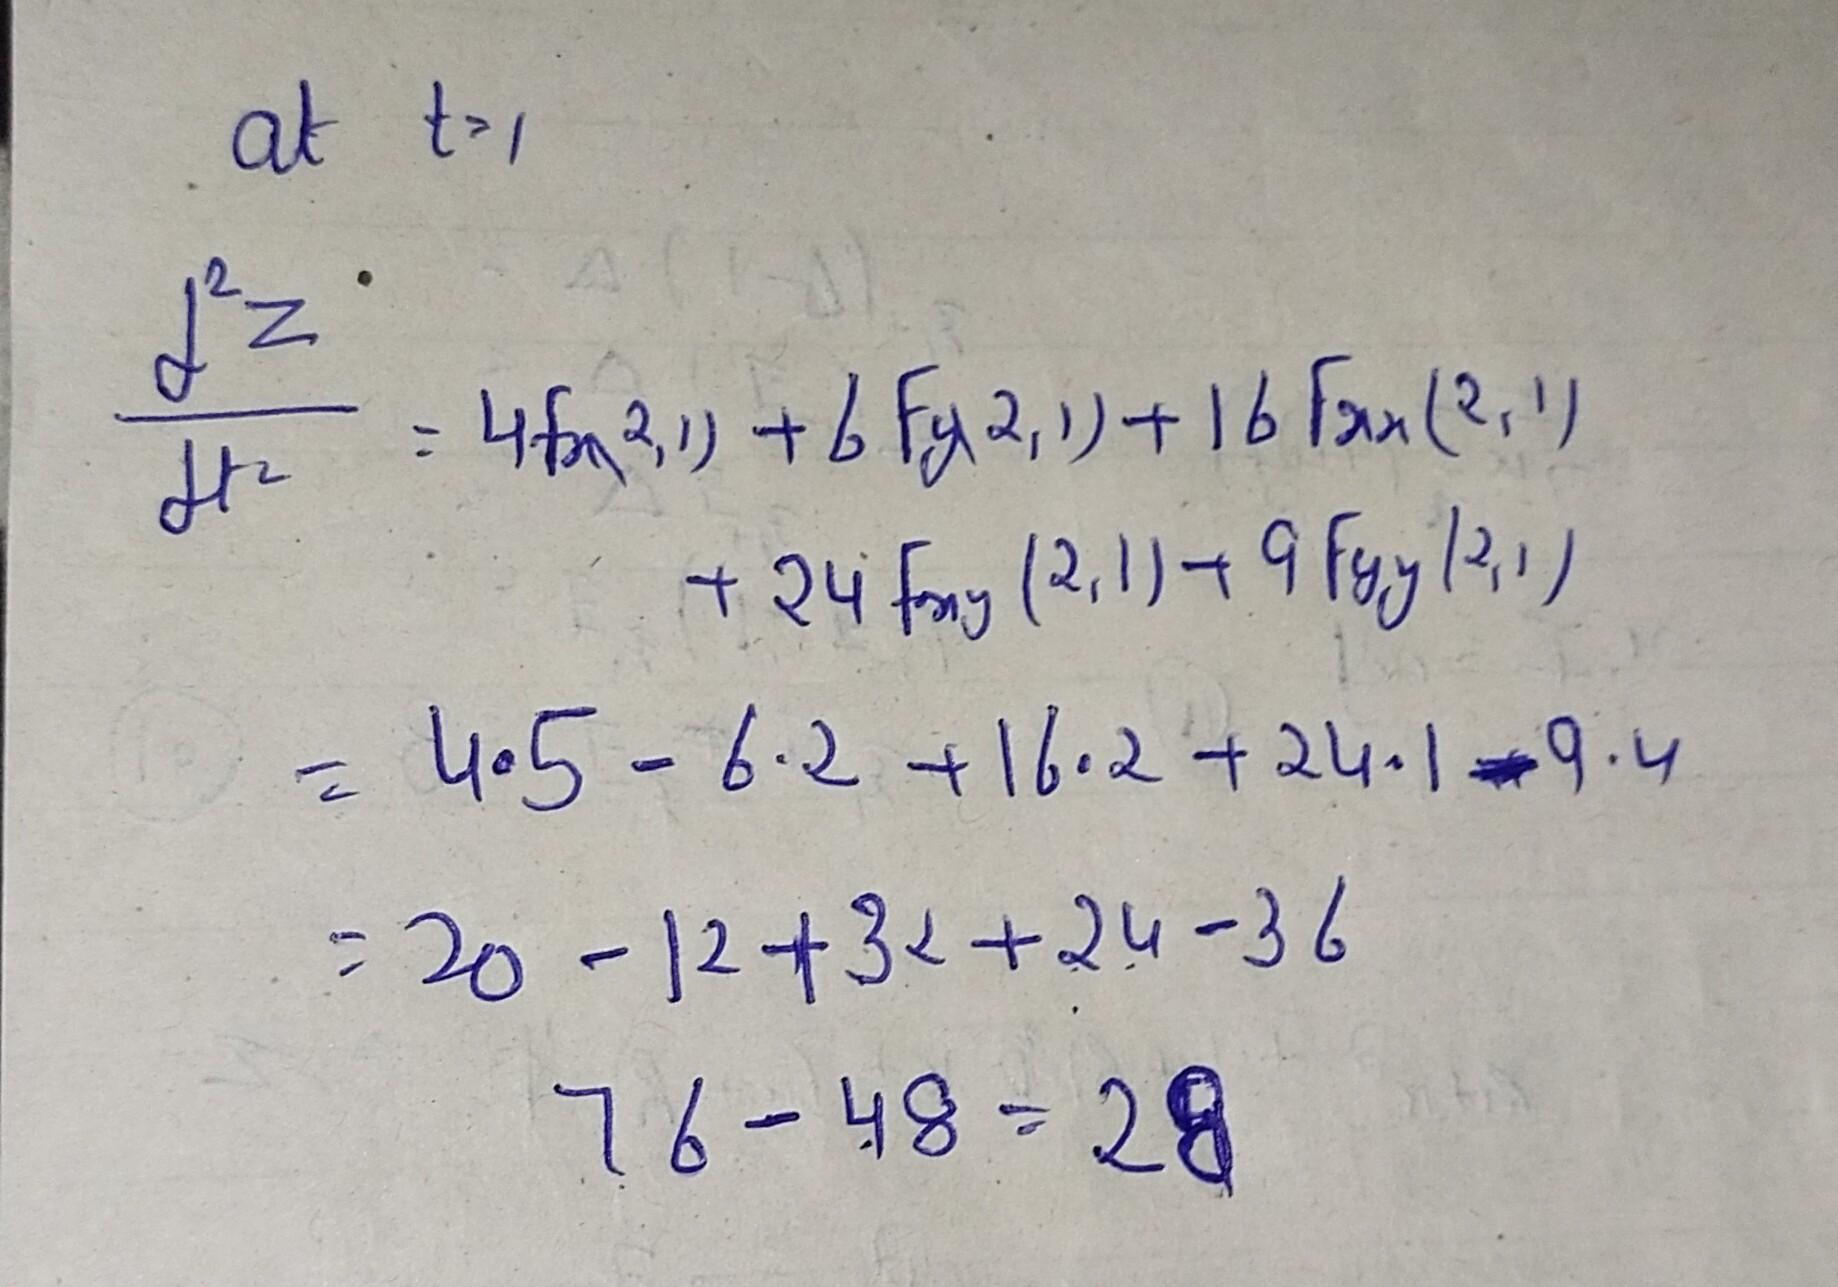 at t=1
d²z/dt² = 4fx(2,1) + 6 Fy(2,1) + 16 Fxx(2,1)
+ 24 Fxy (2,1) + 9 Fyy (2,1)
= 4•5 - 6.2 + 16.2 + 24.1 - 9.4
= 20 - 12 + 32 + 24 - 36
76 - 48 = 28